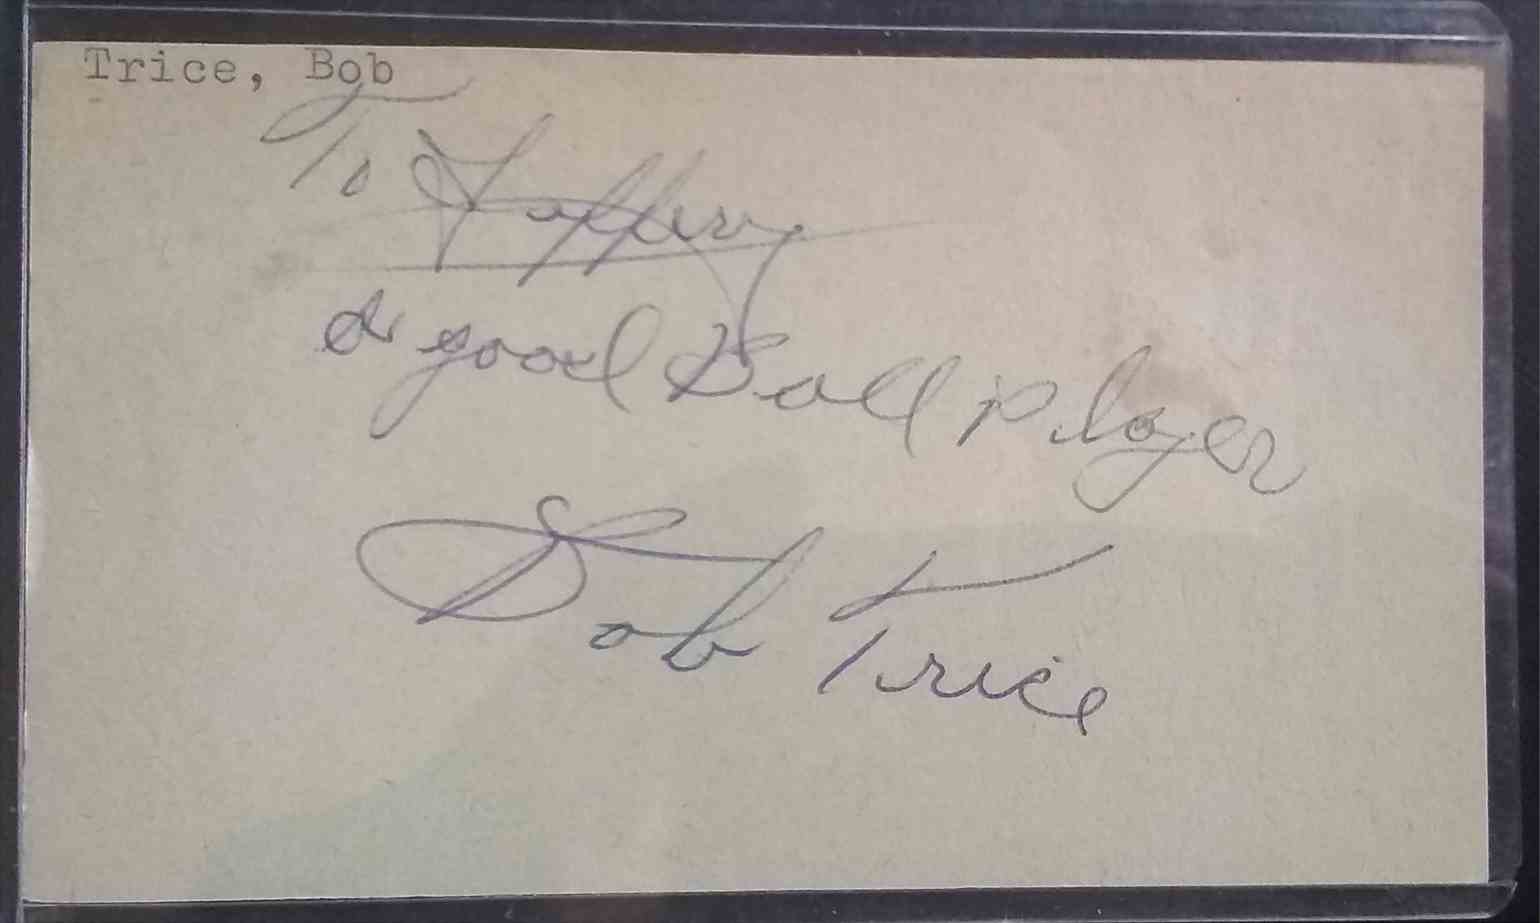 Trice, Bob
To Jeffery
a good Ball player
Bob Trice